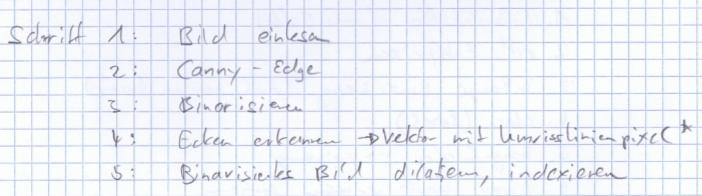 Schritt 1: Bild einlesen
2: Canny-Edge
3: Binarisieren
4: Ecken erkennen → Vektor mit Umrisslinienpixel *
5: Binarisiertes Bild dilatieren, indexieren